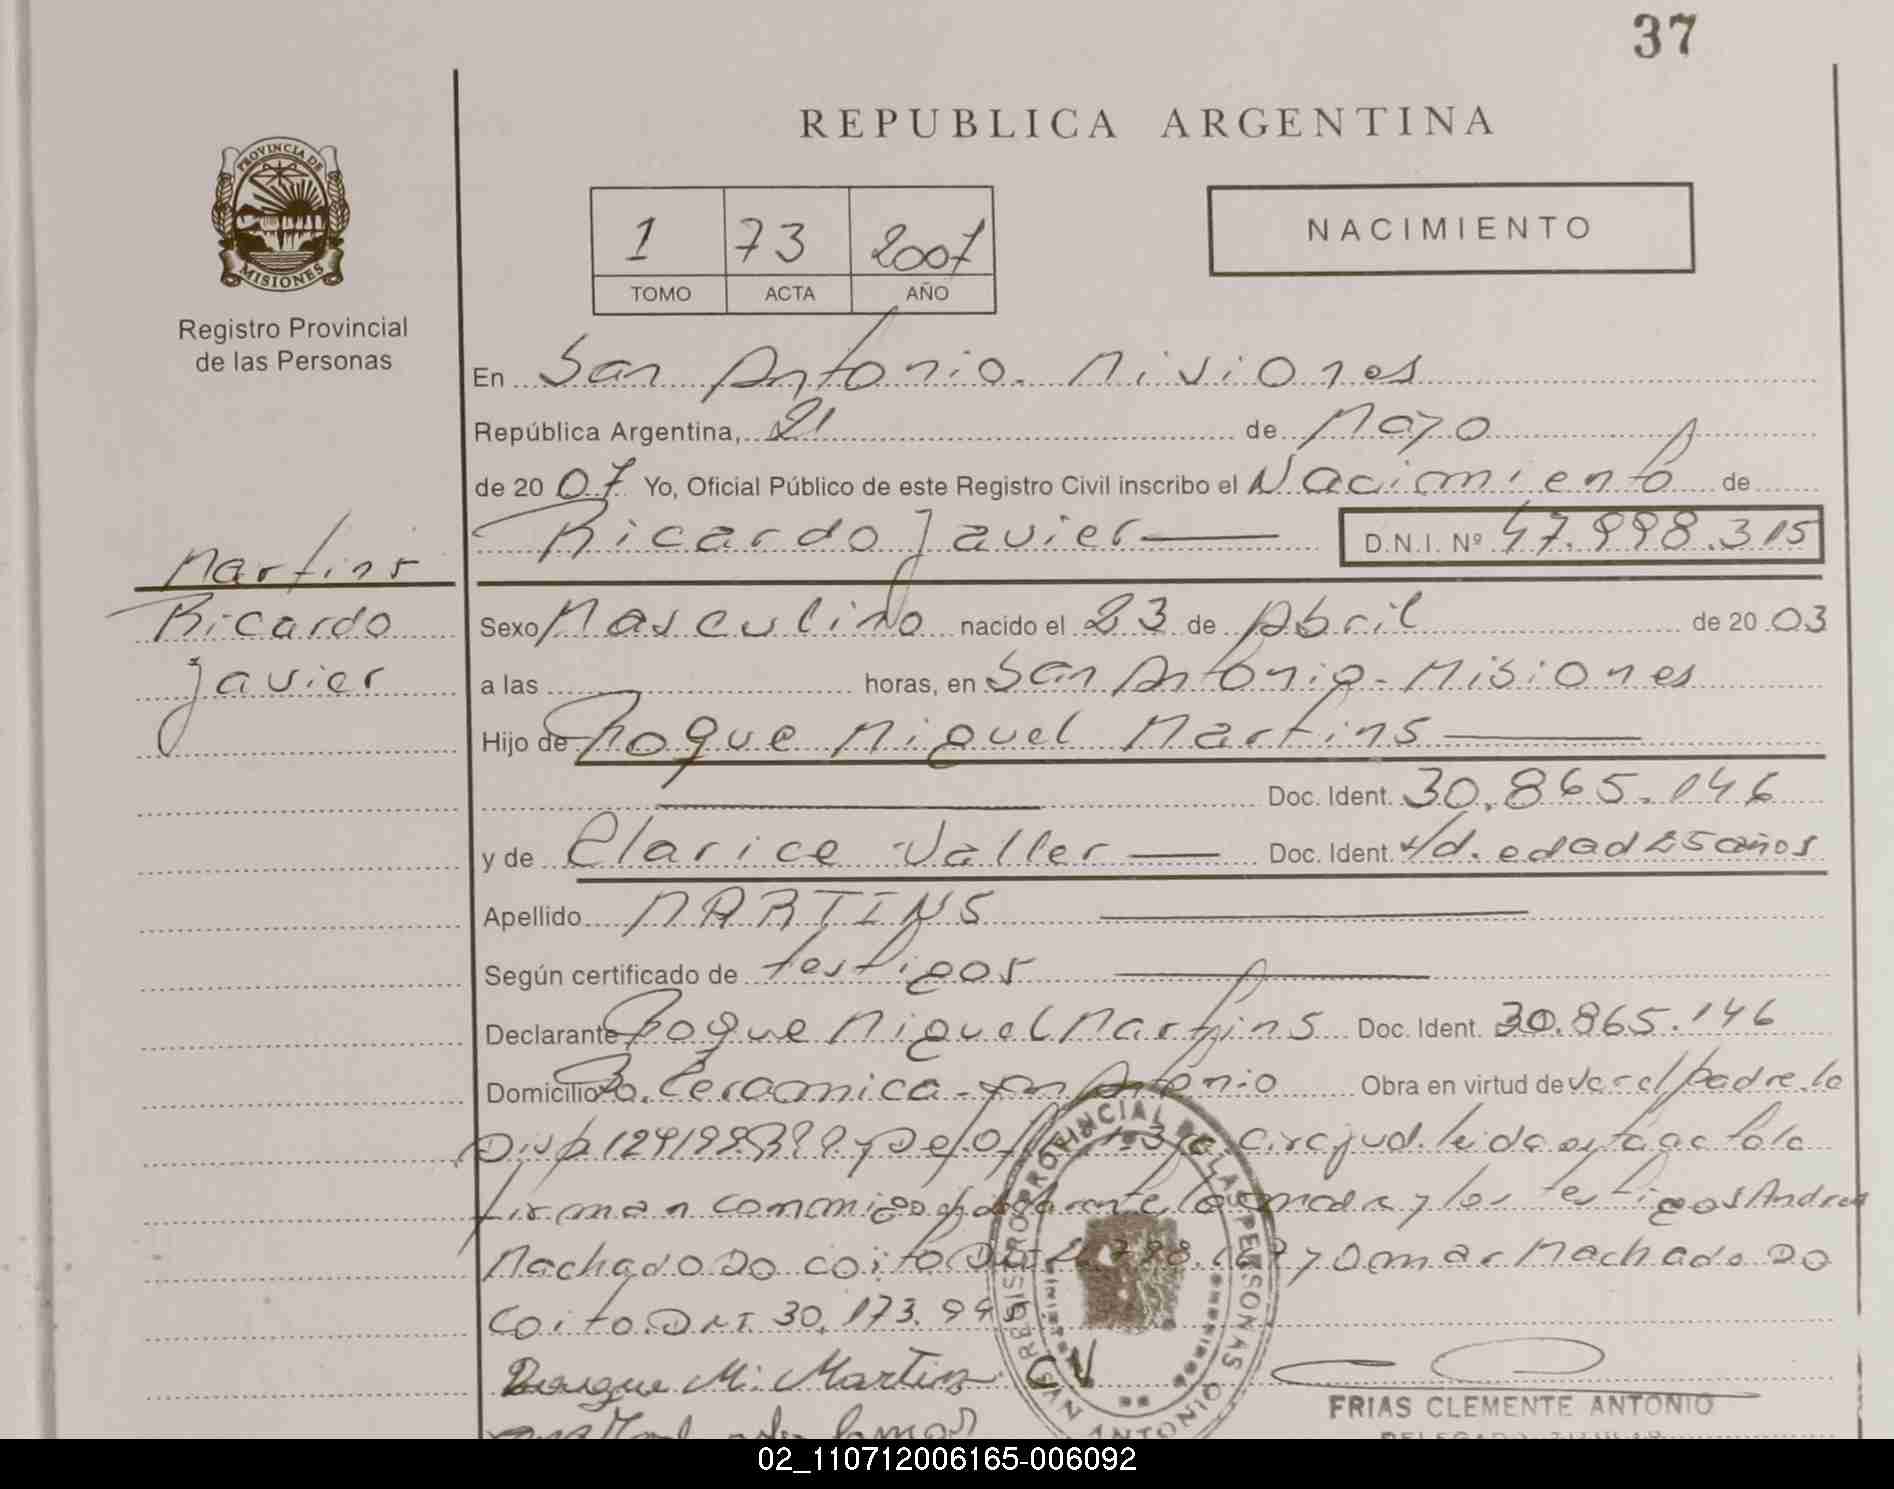 37
REPUBLICA ARGENTINA
PROVINCIA DE
MISIONES
Registro Provincial
de las Personas
1 73 2007
TOMO ACTA AÑO
NACIMIENTO
En San Antonio. Misiones
República Argentina, 21 de Mayo
de 20 07 Yo, Oficial Público de este Registro Civil inscribo el Nacimiento de
Ricardo Javier D.N.I. Nº 47.998.315
Martins
Ricardo
Javier
Sexo Masculino nacido el 23 de Abril de 20 03
a las horas, en San Antonio - Misiones
Hijo de Roque Miguel Martins
Doc. Ident. 30.865.146
y de Clarice Valler Doc. Ident. s/d. edad 25 años
Apellido MARTINS
Según certificado de testigos
Declarante Roque Miguel Martins Doc. Ident. 30.865.146
Domicilio Bo. Ceramica - San Antonio Obra en virtud de ser el padre. la
Disp 129/98 y 3ra Circ jud. leida esta acta la
firman conmigo el declarante la madre y los testigos Andres
Machado Do Coito y Omar Machado Do
Coito. DNI. 30.173.
Roque M. Martins CV
REGISTRO PROVINCIAL DE LAS PERSONAS
FRIAS CLEMENTE ANTONIO
02_110712006165-006092